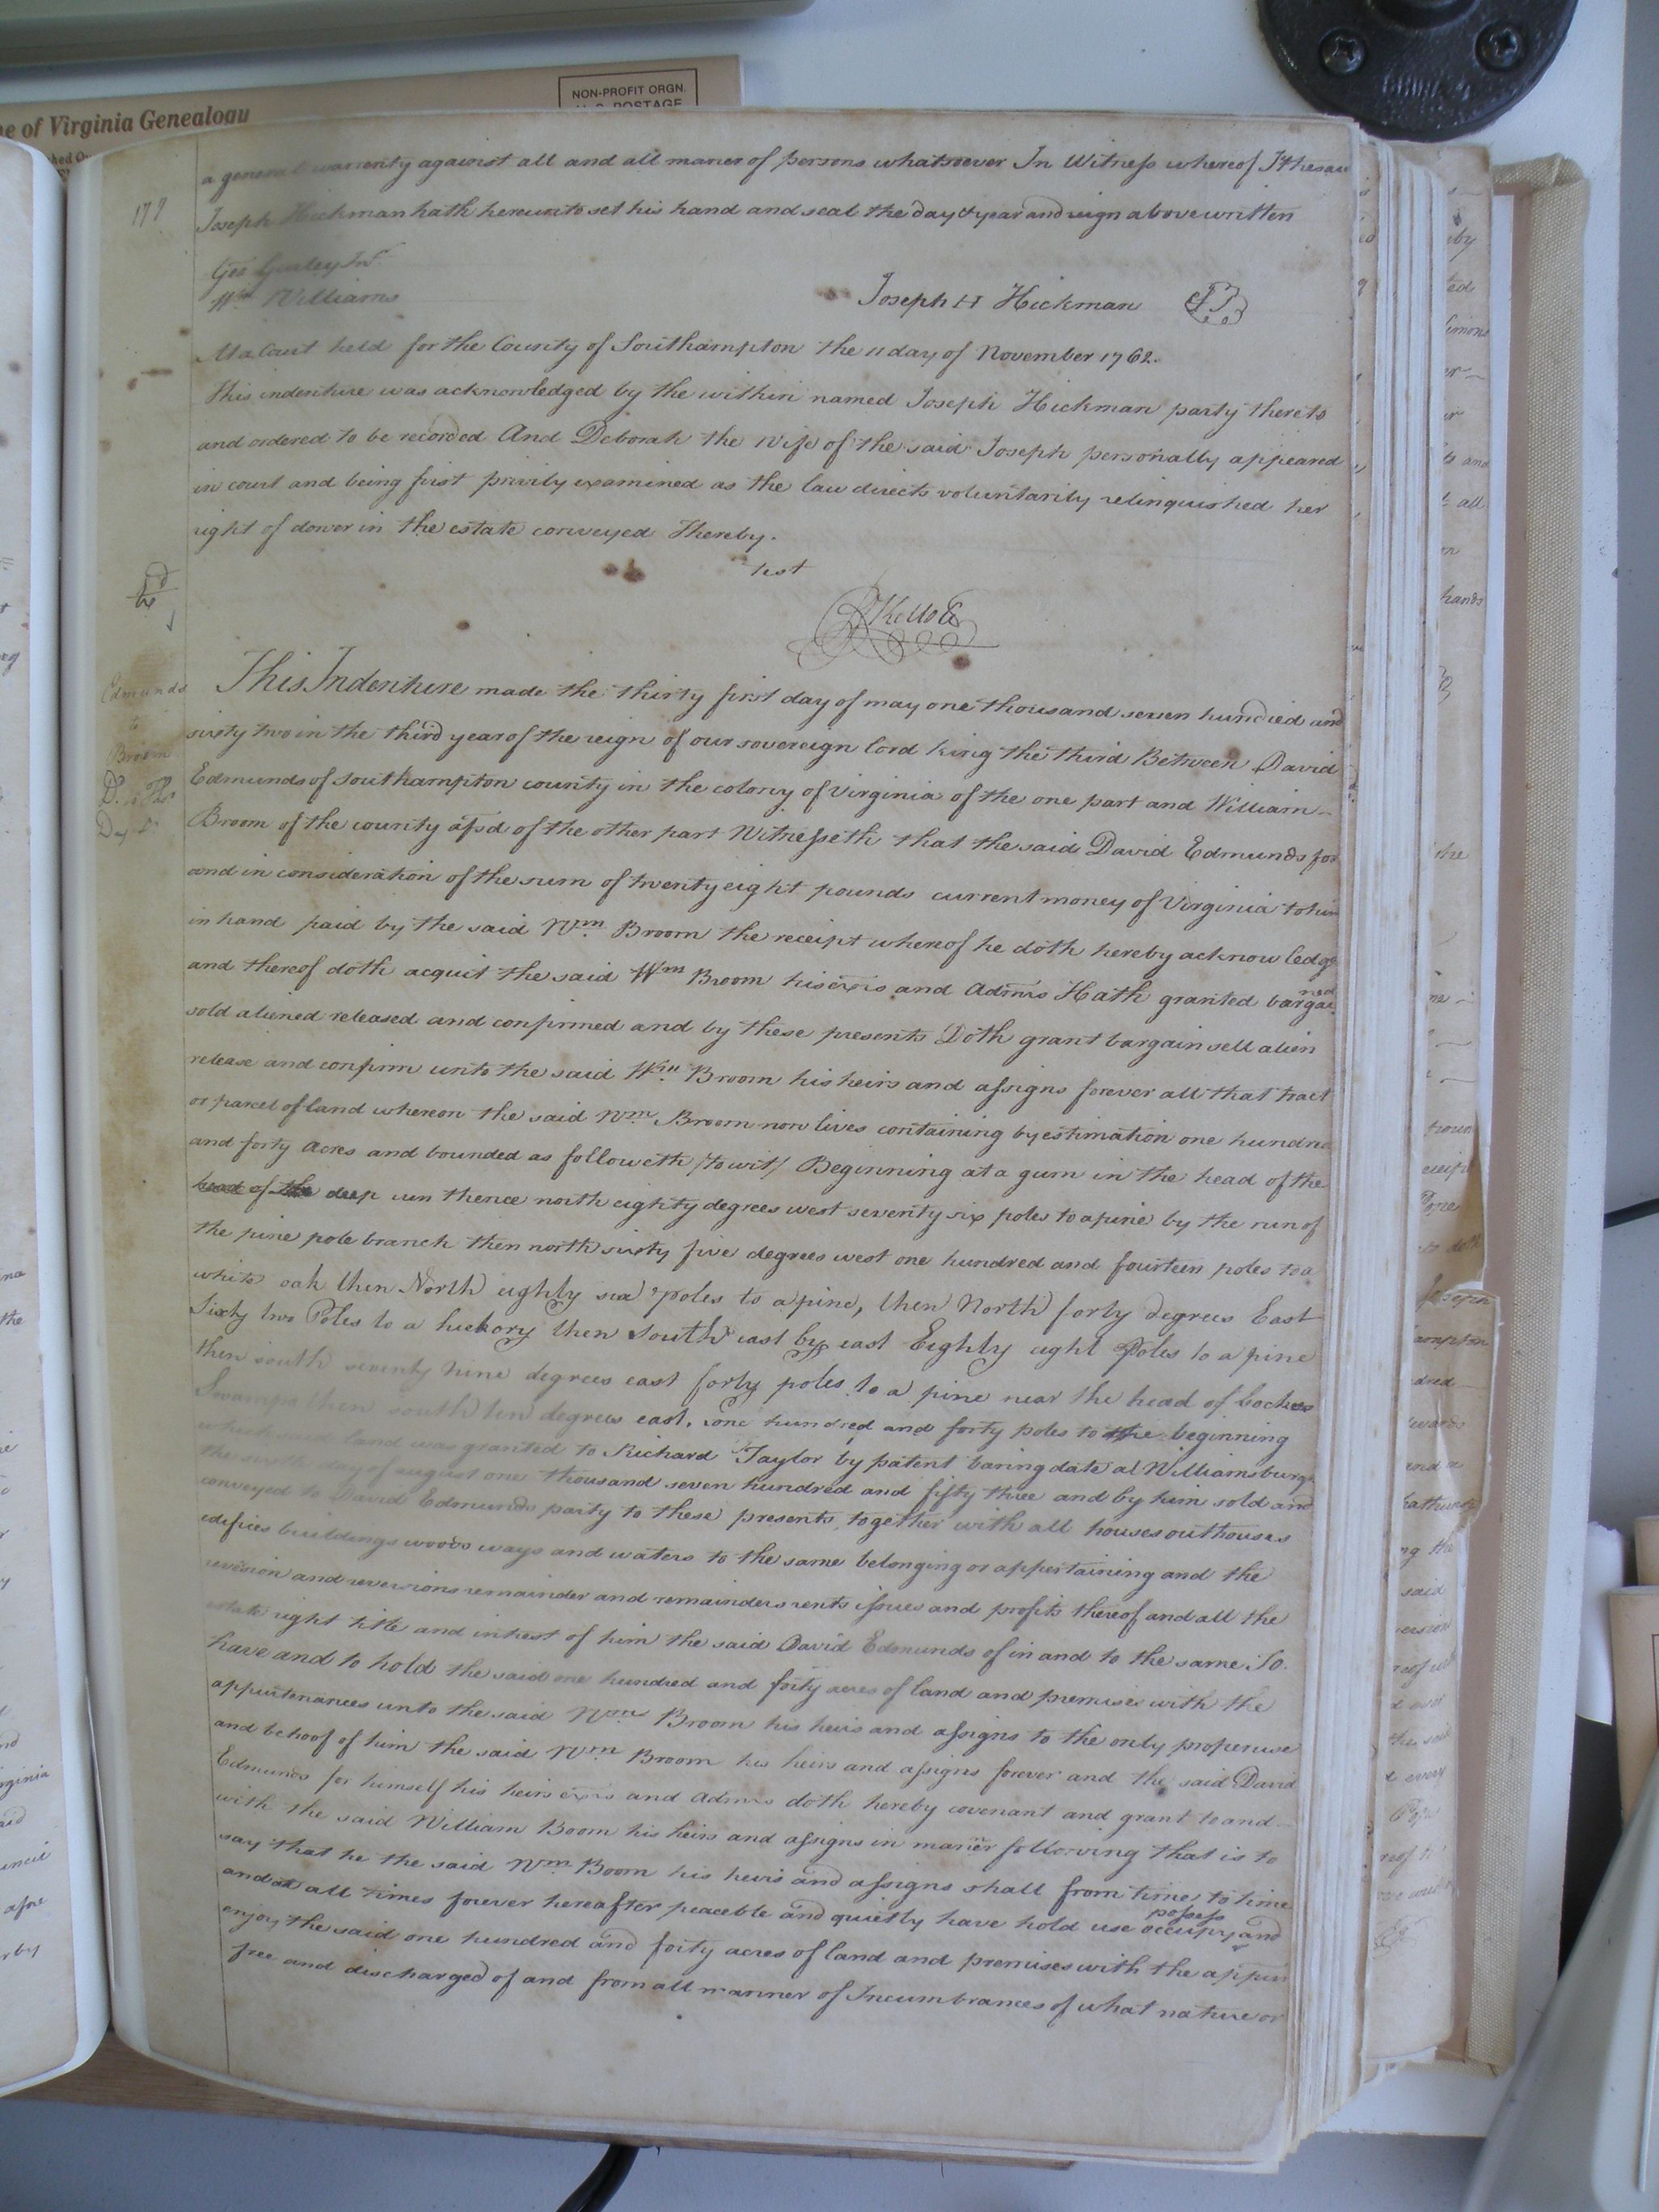 NON-PROFIT ORGN.
U.S. POSTAGE
e of Virginia Genealogy
a general warrenty against all and all maner of persons whatsoever In Witness whereof I the sai
177
Joseph Hickman hath hereunto set his hand and seal the day & year and reign above written
Geo Gurley Jnr
Wm Williams
Joseph H Hickman
At a Court held for the County of Southampton the 11 day of November 1762.
this indenture was acknowledged by the within named Joseph Hickman party thereto
and ordered to be recorded And Deborah the Wife of the said Joseph personally appeared
in court and being first privily examined as the law directs voluntarily relinquished her
right of dower in the estate conveyed Thereby.
test
R Kello C
Edmunds
to
Broom
This Indenture made the thirty first day of may one thousand seven hundred and
sixty two in the third year of the reign of our sovereign lord king the third Between David
Edmunds of Southampton county in the colony of Virginia of the one part and William
Broom of the county afsd of the other part Witnesseth that the said David Edmunds for
and in consideration of the sum of twenty eight pounds current money of Virginia to him
in hand paid by the said Wm Broom the receipt whereof he doth hereby acknowledge
and thereof doth acquit the said Wm Broom his exrs and Admrs Hath granted bargained
sold aliened released and confirmed and by these presents Doth grant bargain sell alien
release and confirm unto the said Wm Broom his heirs and assigns forever all that tract
or parcel of land whereon the said Wm Broom now lives containing by estimation one hundred
and forty Acres and bounded as followeth /to wit/ Beginning at a gum in the head of the
head of the deep run thence north eighty degrees west seventy six poles to a pine by the run of
the pine pole branch then north sixty five degrees west one hundred and fourteen poles to a
white oak then North eighty six poles to a pine, then North forty degrees East
Sixty two Poles to a hickory then South east by east Eighty eight Poles to a pine
then south seventy nine degrees east forty poles to a pine near the head of
Swamps then south ten degrees east, one hundred and forty poles to the beginning
which said land was granted to Richard Taylor by patent baring date at Williamsburg
the sixth day of august one thousand seven hundred and fifty three and by him sold and
conveyed to David Edmunds party to these presents, together with all houses outhouses
edifices buildings woods ways and waters to the same belonging or appertaining and the
revision and reversions remainder and remainders rents issues and profits thereof and all the
estate right title and intrest of him the said David Edmunds of in and to the same To
have and to hold the said one hundred and forty acres of land and premises with the
appurtenances unto the said Wm Broom his heirs and assigns to the only proper use
and behoof of him the said Wm Broom his heirs and assigns forever and the said David
Edmunds for himself his heirs exrs and Admrs doth hereby covenant and grant to and
with the said William Boom his heirs and assigns in maner following that is to
say that he the said Wm Boom his heirs and assigns shall from time to time
and at all times forever hereafter peaceble and quietly have hold use occupy possess and
enjoy the said one hundred and forty acres of land and premises with the appur
free and discharged of and from all manner of Incumbrances of what nature or